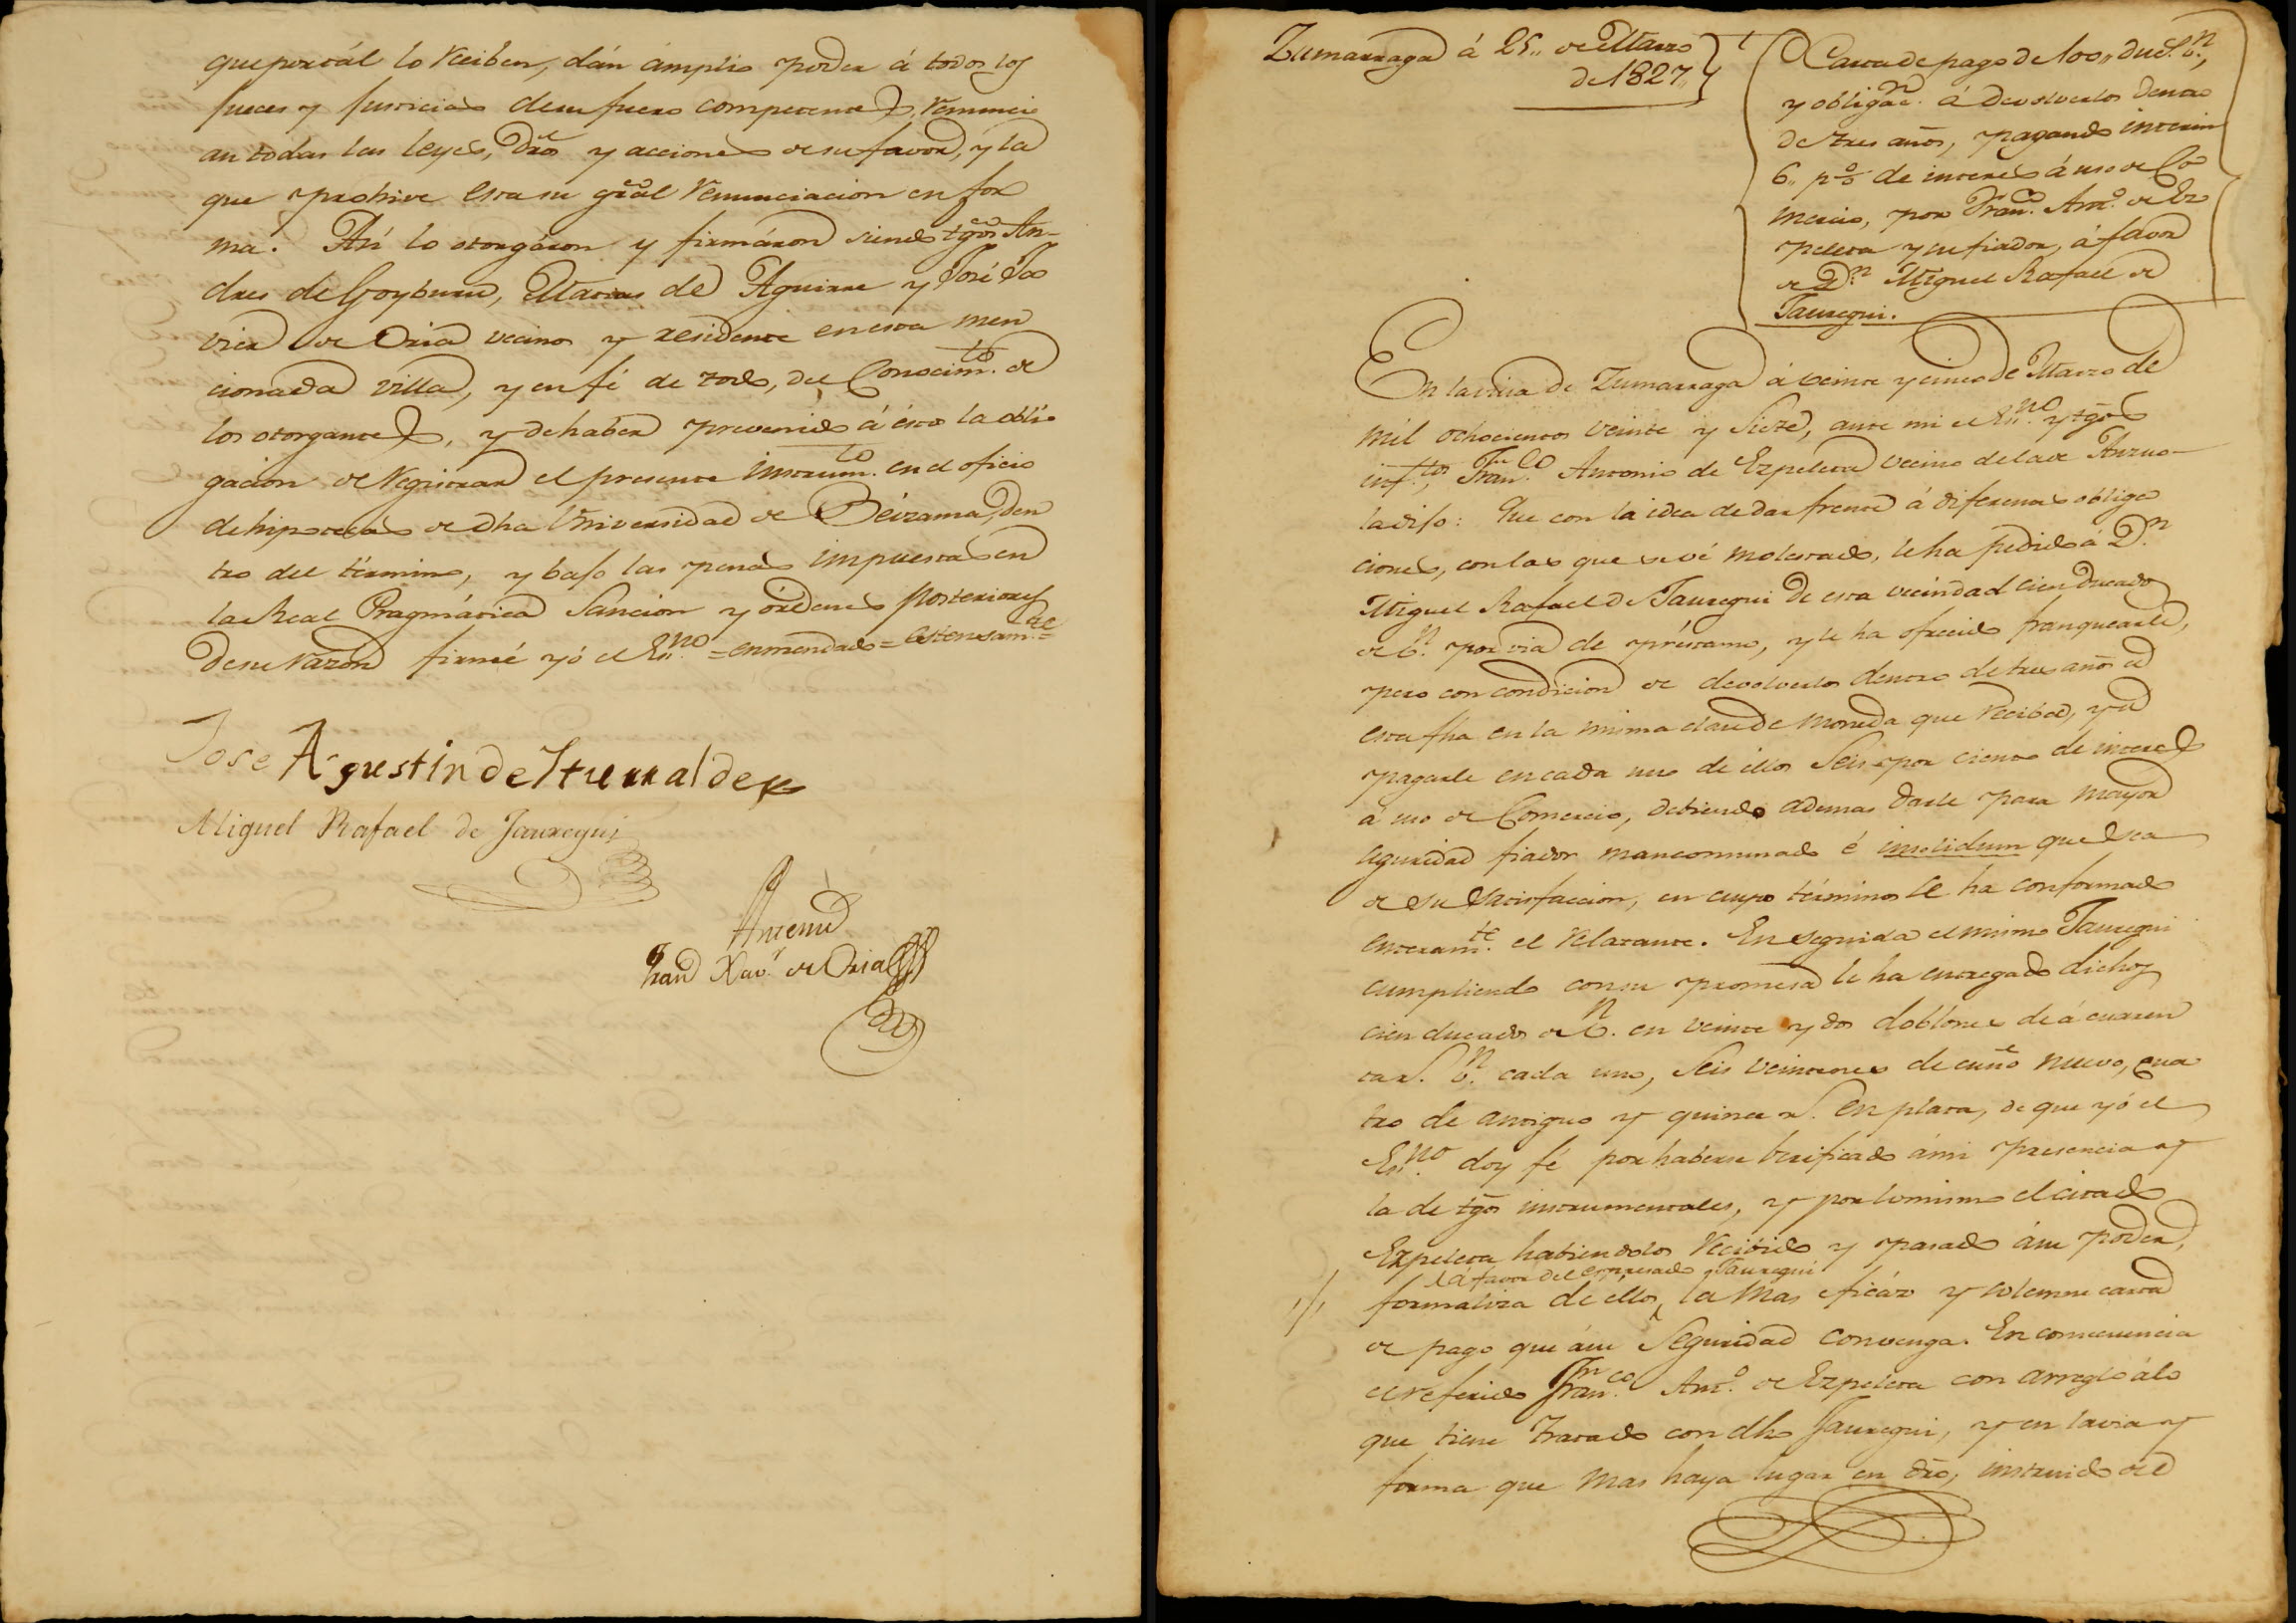 que por tál lo reciben, dán ámplio poder á todos los
Jueces y Justicias de su fuero competente, renunci
an todas las leyes, dros y acciones de su favor, y la
que prohive esta su gral renunciacion en for
ma. Así lo otorgáron y firmáron siendo tgos An-
dres de Goyburu, Matias de Aguirre y José Ja
vier de Oria vecinos y residente en esta men
cionada villa, y en fé de todo, del Conocimto. de
los otorgantes, y de haber prevenido á éstos la obli
gacion de registrar el presente instrumto. en el oficio
de hipotecas de dha Universidad de Beizama, den
tro del término, y bajo las penas impuestas en
la Real Pragmática Sancion y órdenes posteriores
de su razon firmé yó el Esno. = enmendado = estensamte =
Jose Agustin de Iturralde
Miguel Rafael de Jauregui
Antemi
Fran Xavr. de Oria
Zumarraga á 25,, de Marzo
de 1827,,
Carta de pago de 100,, ducs. vn.,
y obligacn. á devolverlos dentro
de tres años, pagando interin
6,, p% de interes á uso de Co
mercio, por Franco. Anto. de Ez
peleta y su fiador, á favor
de Dn. Miguel Rafael de
Jauregui.
En la villa de Zumarraga á veinte y cinco de Marzo de
mil ochocientos veinte y siete, ante mi el Esno. y tgos
inftos, Franco. Antonio de Ezpeleta vecino de la de Anzuo-
la dijo: Que con la idea de dar frente á diferentes obliga
ciones, con las que se vé molestado, le ha pedido á Dn.
Miguel Rafael de Jauregui de esta vecindad cien ducados
de vn. por via de préstamo, y le ha ofrecido franquearle,
pero con condicion de devolverlos dentro de tres años de
esta fha en la misma clase de moneda que reciba, y de
pagarle en cada uno de ellos seis por ciento de interes
á uso de Comercio, debiendo ademas darle para mayor
seguridad fiador mancomunado é insolidum que sea
de su satisfaccion, en cuyos términos se ha conformado
enteramte. el relatante. En seguida el mismo Jauregui
cumpliendo con su promesa le ha entregado dichos
cien ducados de vn. en veinte y dos doblones de á cuaren
ta r. vn. cada uno, seis veintenes de cuño nuevo, cua
tro de antiguo y quince r. en plata, de que yó el
Esno. doy fé por haberse verificado á mi presencia y
la de tgos instrumentales, y por lo mismo el citado
Ezpeleta habiendolos recibido y pasado á su poder,
á favor del espresado Jauregui
formaliza de ellos la mas eficáz y solemne carta
de pago que á su seguridad convenga. En consecuencia
el referido Franco. Anto. de Ezpeleta con arreglo á lo
que tiene tratado con dho Jauregui, y en la via y
forma que mas haya lugar en dro, instruido del